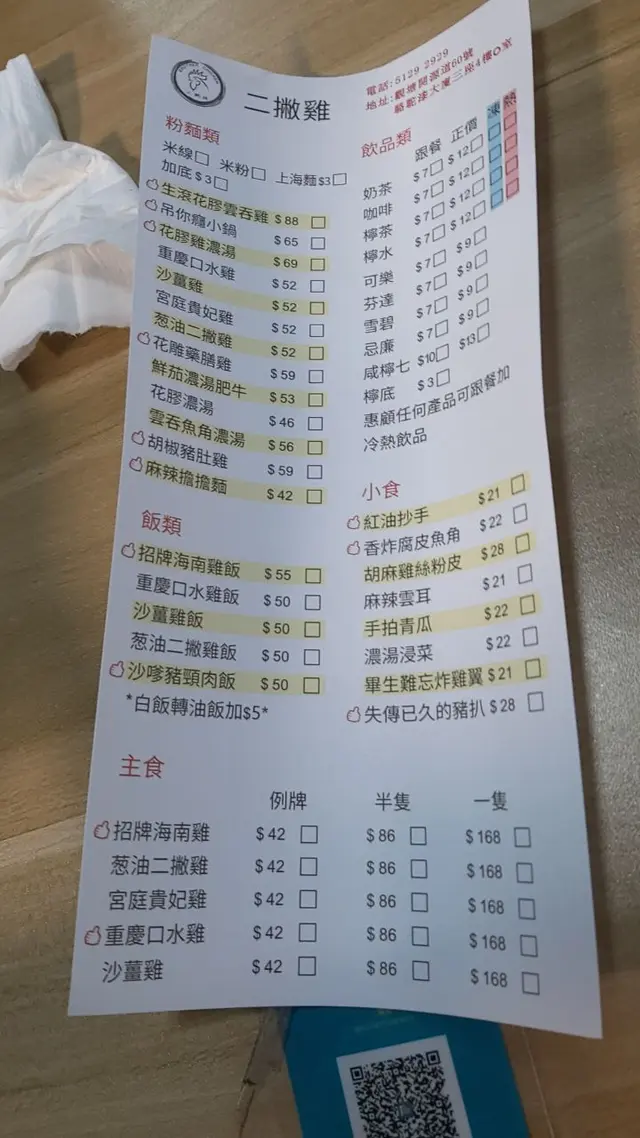 二撇雞
電話:5129 2929
地址:觀塘開源道60號
駱駝漆大廈三座4樓O室
粉麵類
米線□ 米粉□ 上海麵$3□
加底$3□
生滾花膠雲吞雞 $88 □
吊你癮小鍋 $65 □
花膠雞濃湯 $69 □
重慶口水雞 $52 □
沙薑雞 $52 □
宮庭貴妃雞 $52 □
葱油二撇雞 $52 □
花雕藥膳雞 $59 □
鮮茄濃湯肥牛 $53 □
花膠濃湯 $46 □
雲吞魚角濃湯 $56 □
胡椒豬肚雞 $59 □
麻辣擔擔麵 $42 □
飯類
招牌海南雞飯 $55 □
重慶口水雞飯 $50 □
沙薑雞飯 $50 □
葱油二撇雞飯 $50 □
沙嗲豬頸肉飯 $50 □
*白飯轉油飯加$5*
飲品類
跟餐 正價 凍 熱
奶茶 $7□ $12□ □ □
咖啡 $7□ $12□ □ □
檸茶 $7□ $12□ □ □
檸水 $7□ $12□ □ □
可樂 $7□ $9□
芬達 $7□ $9□
雪碧 $7□ $9□
忌廉 $7□ $9□
咸檸七 $10□ $13□
檸底 $3□
惠顧任何產品可跟餐加
冷熱飲品
小食
紅油抄手 $21 □
香炸腐皮魚角 $22 □
胡麻雞絲粉皮 $28 □
麻辣雲耳 $21 □
手拍青瓜 $22 □
濃湯浸菜 $22 □
畢生難忘炸雞翼 $21 □
失傳已久的豬扒 $28 □
主食
例牌 半隻 一隻
招牌海南雞 $42 □ $86 □ $168 □
葱油二撇雞 $42 □ $86 □ $168 □
宮庭貴妃雞 $42 □ $86 □ $168 □
重慶口水雞 $42 □ $86 □ $168 □
沙薑雞 $42 □ $86 □ $168 □